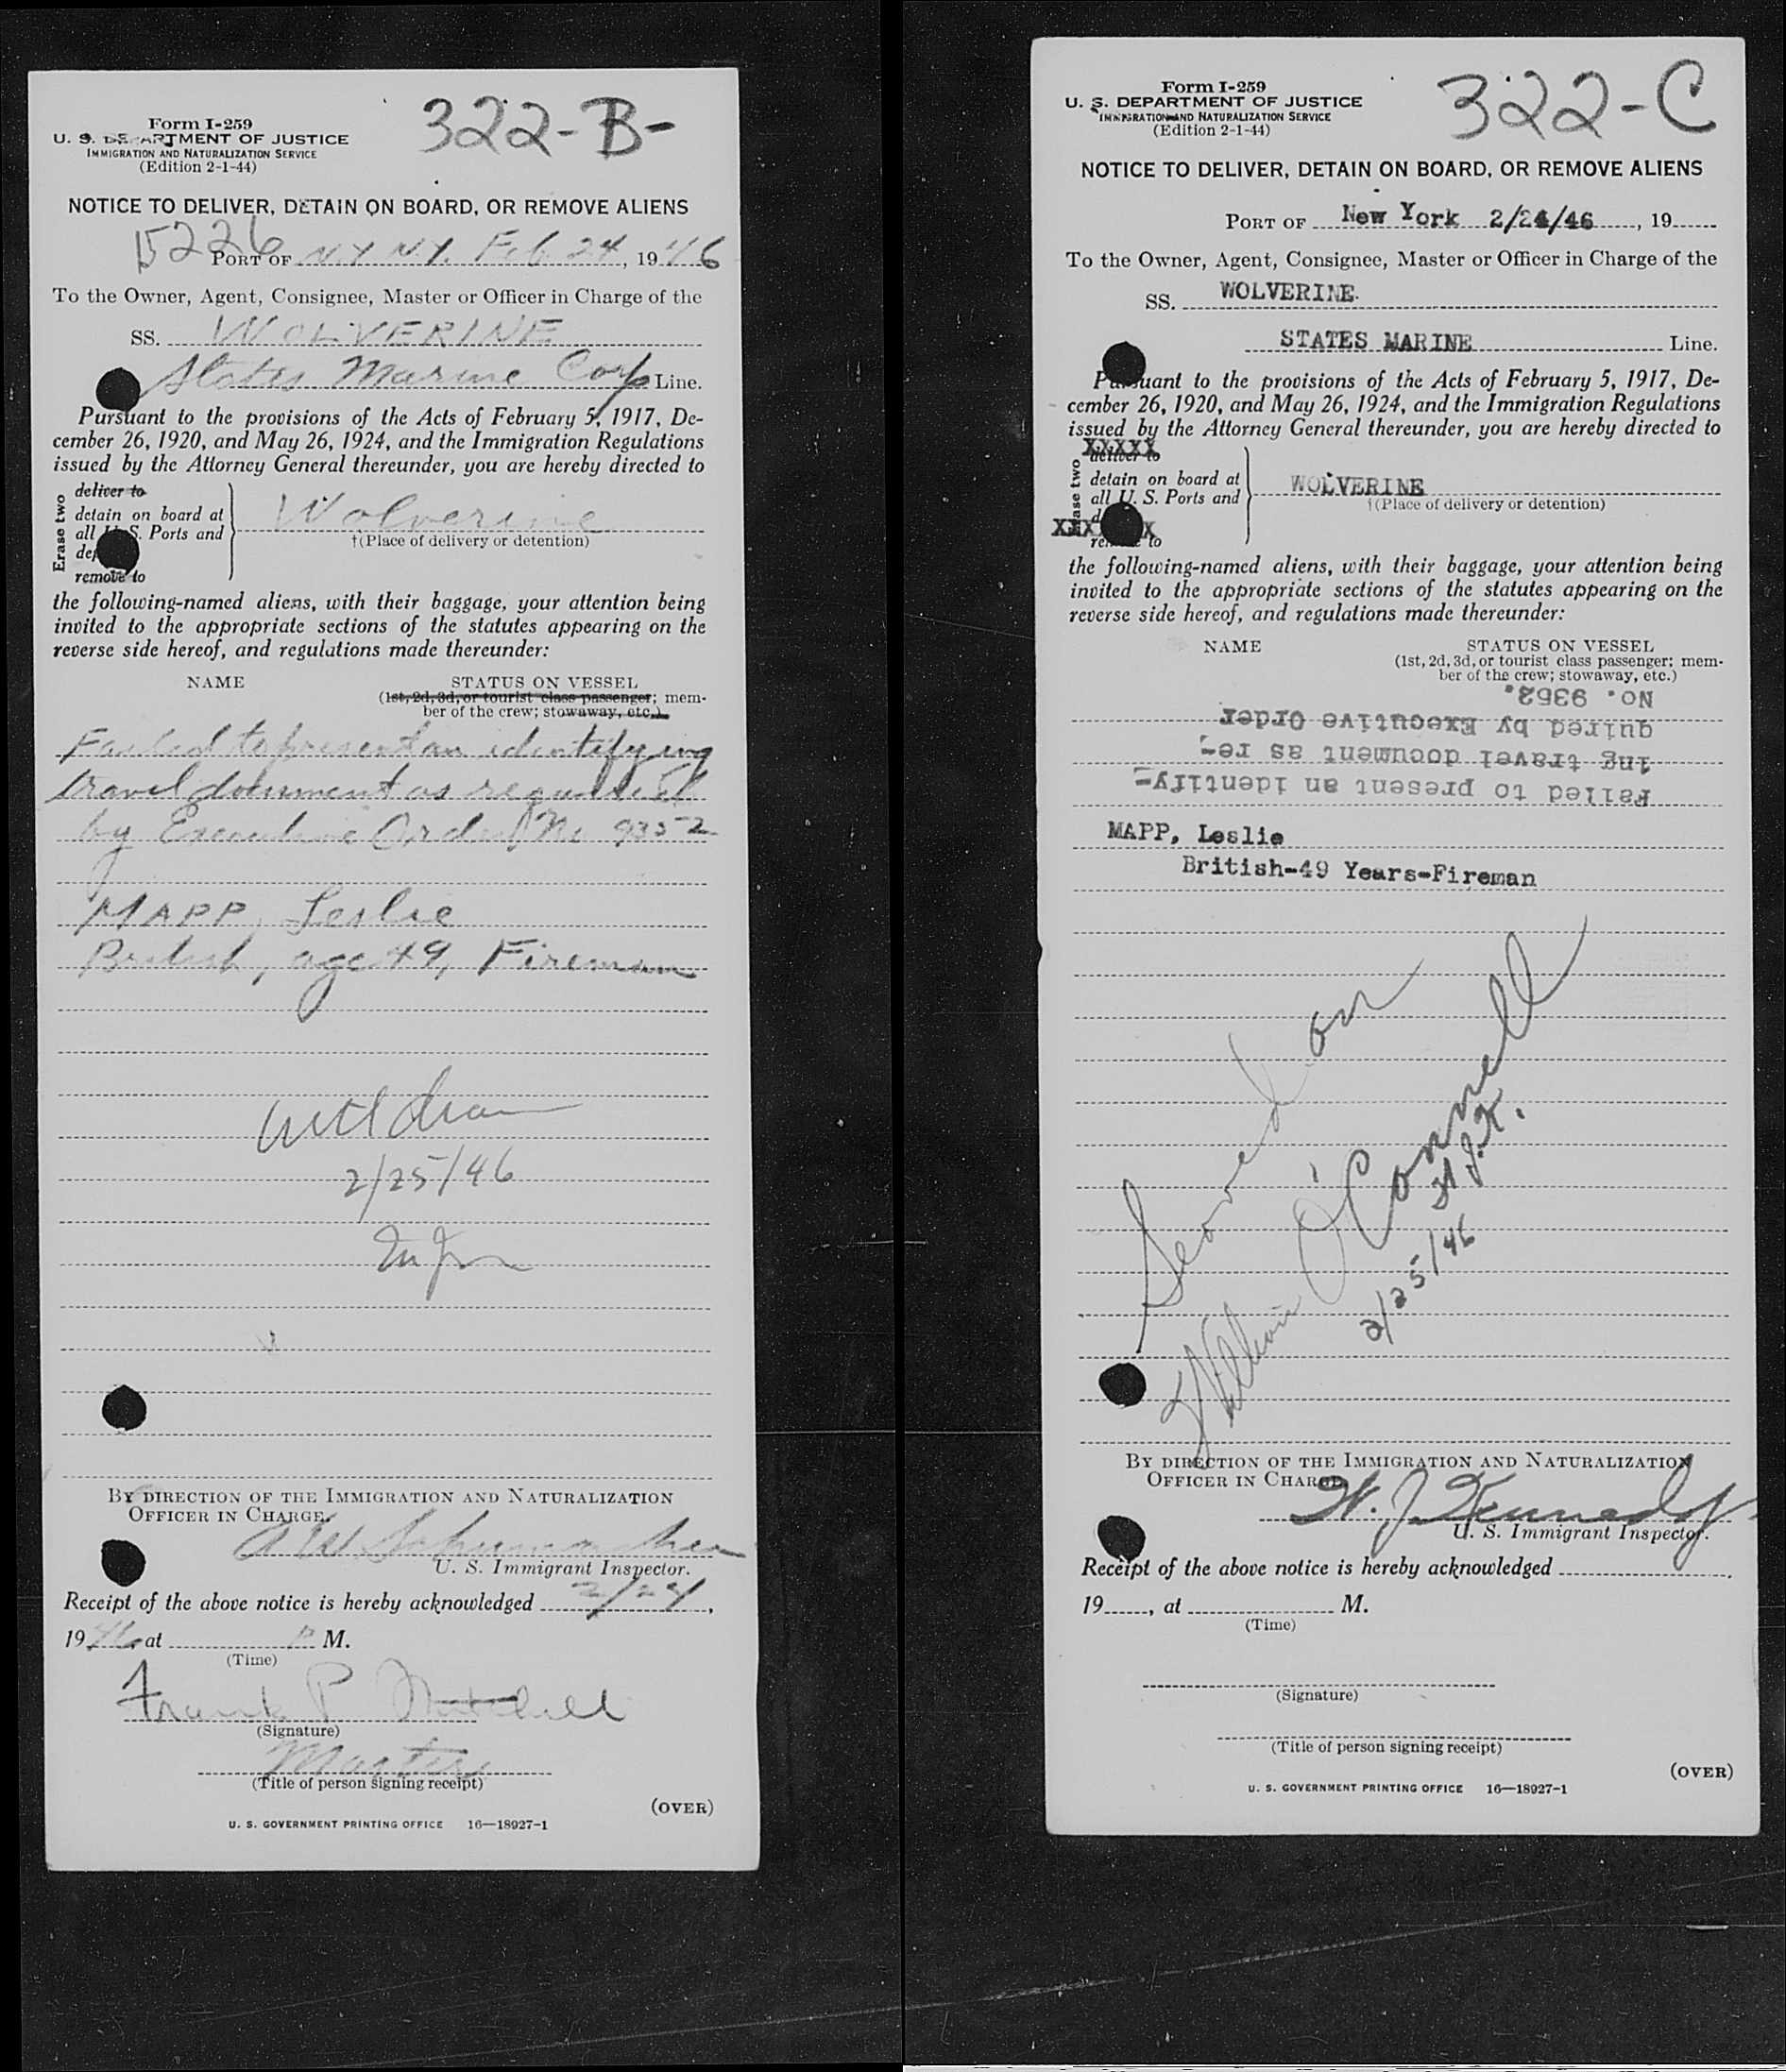 322-B-
Form I-259
U. S. DEPARTMENT OF JUSTICE
IMMIGRATION AND NATURALIZATION SERVICE
(Edition 2-1-44)
NOTICE TO DELIVER, DETAIN ON BOARD, OR REMOVE ALIENS
15226
PORT OF N.Y. N.Y. Feb 24, 1946
To the Owner, Agent, Consignee, Master or Officer in Charge of the
SS. WOLVERINE
States Marine Corp Line.
Pursuant to the provisions of the Acts of February 5, 1917, De-
cember 26, 1920, and May 26, 1924, and the Immigration Regulations
issued by the Attorney General thereunder, you are hereby directed to
Erase two
deliver to
detain on board at
all U. S. Ports and
remove to
Wolverine
†(Place of delivery or detention)
the following-named aliens, with their baggage, your attention being
invited to the appropriate sections of the statutes appearing on the
reverse side hereof, and regulations made thereunder:
NAME STATUS ON VESSEL
(1st, 2d, 3d, or tourist class passenger; mem-
ber of the crew; stowaway, etc.)
Failed to present an identifying
travel document as required
by Executive Order No 9352
MAPP, Leslie
British, age 49, Fireman
2/25/46
BY DIRECTION OF THE IMMIGRATION AND NATURALIZATION
OFFICER IN CHARGE.
A W Schumacher
U. S. Immigrant Inspector.
Receipt of the above notice is hereby acknowledged 2/24,
1946 at P M.
(Time)
Frank P Mitchell
(Signature)
Master
(Title of person signing receipt)
(OVER)
U. S. GOVERNMENT PRINTING OFFICE 16—18927-1
322-C
Form I-259
U. S. DEPARTMENT OF JUSTICE
IMMIGRATION AND NATURALIZATION SERVICE
(Edition 2-1-44)
NOTICE TO DELIVER, DETAIN ON BOARD, OR REMOVE ALIENS
PORT OF New York 2/24/46, 19
To the Owner, Agent, Consignee, Master or Officer in Charge of the
SS. WOLVERINE.
STATES MARINE Line.
Pursuant to the provisions of the Acts of February 5, 1917, De-
cember 26, 1920, and May 26, 1924, and the Immigration Regulations
issued by the Attorney General thereunder, you are hereby directed to
XXXXX
deliver to
detain on board at
all U. S. Ports and
remove to
WOLVERINE
†(Place of delivery or detention)
the following-named aliens, with their baggage, your attention being
invited to the appropriate sections of the statutes appearing on the
reverse side hereof, and regulations made thereunder:
NAME STATUS ON VESSEL
(1st, 2d, 3d, or tourist class passenger; mem-
ber of the crew; stowaway, etc.)
Failed to present an identify-
ing travel document as re-
quired by Executive Order
No. 9352.
MAPP, Leslie
British-49 Years-Fireman
Served on
William O'Connell
W.J.K.
2/25/46
BY DIRECTION OF THE IMMIGRATION AND NATURALIZATION
OFFICER IN CHARGE
W. J. Kennedy
U. S. Immigrant Inspector.
Receipt of the above notice is hereby acknowledged
19, at M.
(Time)
(Signature)
(Title of person signing receipt)
(OVER)
U. S. GOVERNMENT PRINTING OFFICE 16—18927-1